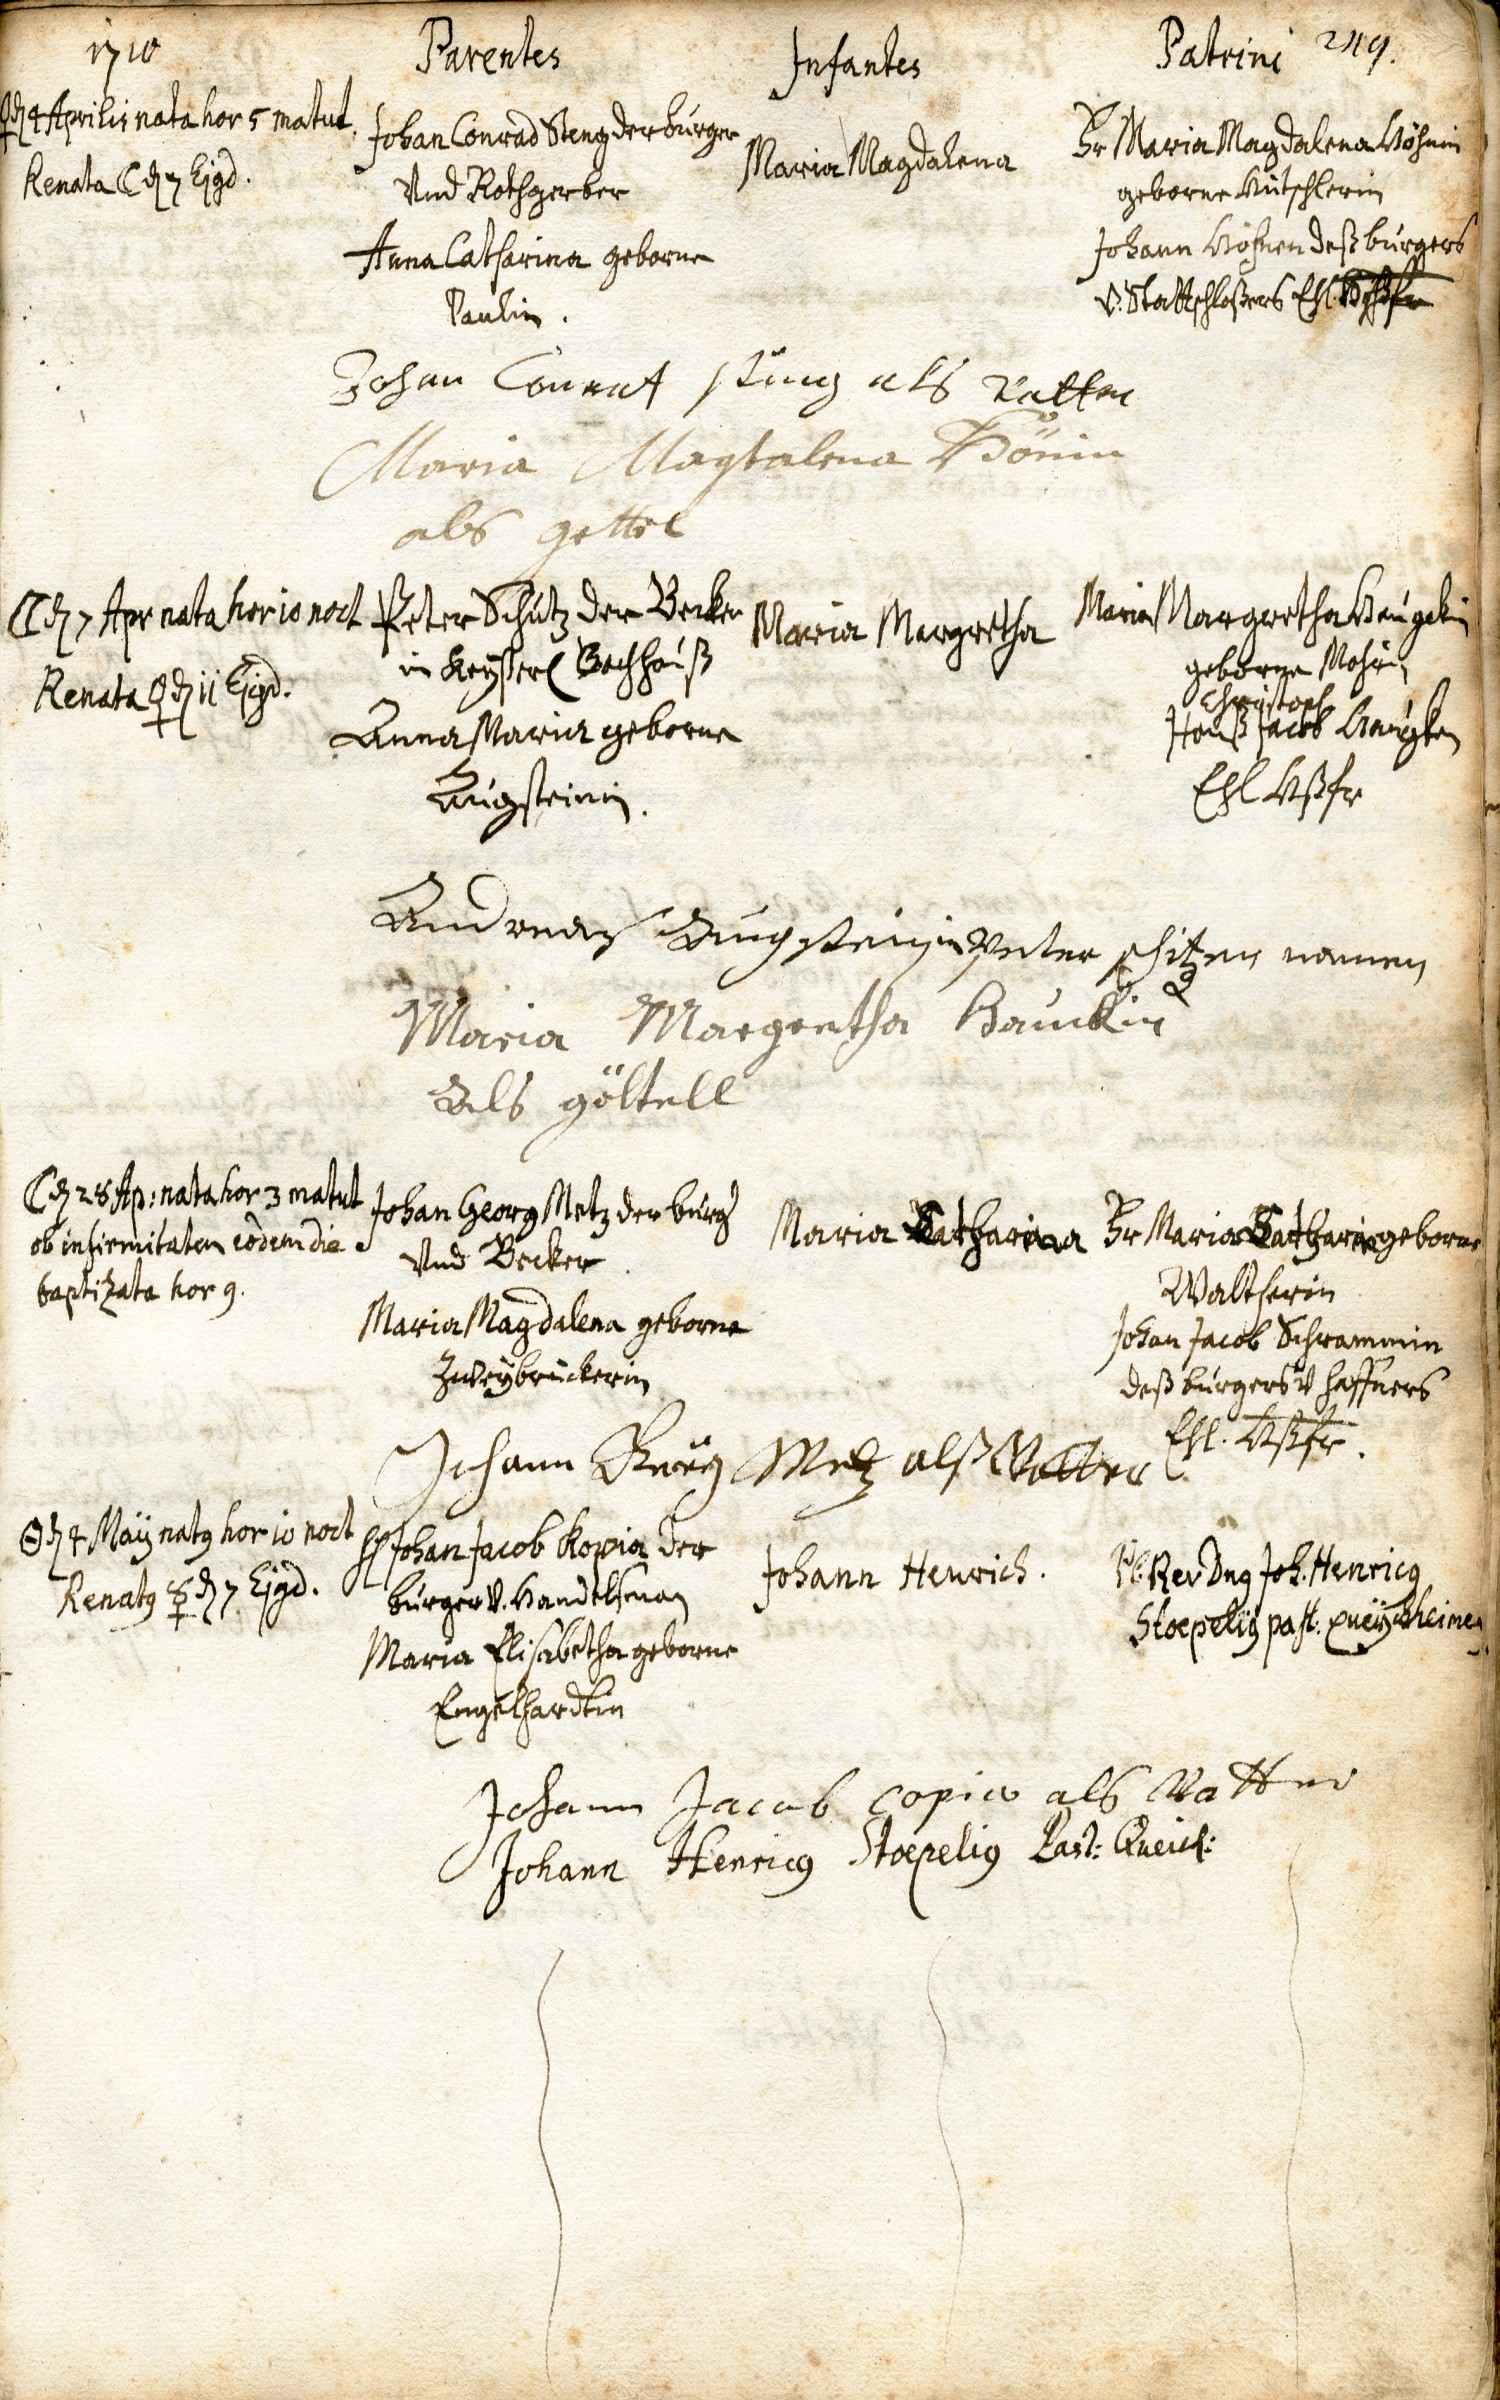 1710 Parentes Infantes Patrini 249.
♀ d 4 Aprilis nata hor 5 matut.
Renata ☾ d 7 Ejgd.
Johan Conrad Steng der burger
Und Rothgerber
Anna Catharina geborne
Paulin.
Maria Magdalena
Fr Maria Magdalena
geborne
Johann deß burgers
v. Stattschloßers Ehl.
Johan Conrat als vatter
Maria Magtalena
als gettel
☾ d 7 Apr nata hor 10 noct
Renata ♀ d 11 Ejgd.
Peter Schütz der Becker
in Keyßerl Bachhauß
Anna Maria geborne
Augsteinin.
Maria Margretha
Maria Margretha
geborne
Christoph
Jacob
Ehl Hßfr
Andreas Augstein in Peter schitzen namen
Maria Margretha Hauckin
Als göttell
☾ d 28 Ap: nata hor 3 matut
ob infirmitatem eodem die
baptizata hor 9.
Johan Georg Metz der burg
Und Becker
Maria Magdalena geborne
Zweybrückerin
Maria Catharina
Fr Maria Catharin geborne
Waltherin
Johan Jacob Schrammin
deß burgers v haffners
Ehl. Hßfr.
Johann Metz alß Vatter
☉ d 4 Maÿ nat9 hor 10 noct
Renat9 d 7 Ejgd.
Johan Jacob Kopia der
burger v. Handelsman
Maria Elisabetha geborne
Engelhardtin
Johann Henrich.
Rev Dn9 Joh. Henric9
Stoepeli9 past.
Johann Jacob Copia als Vatter
Johann Henric9 Stoepeli9 Past: Queich: